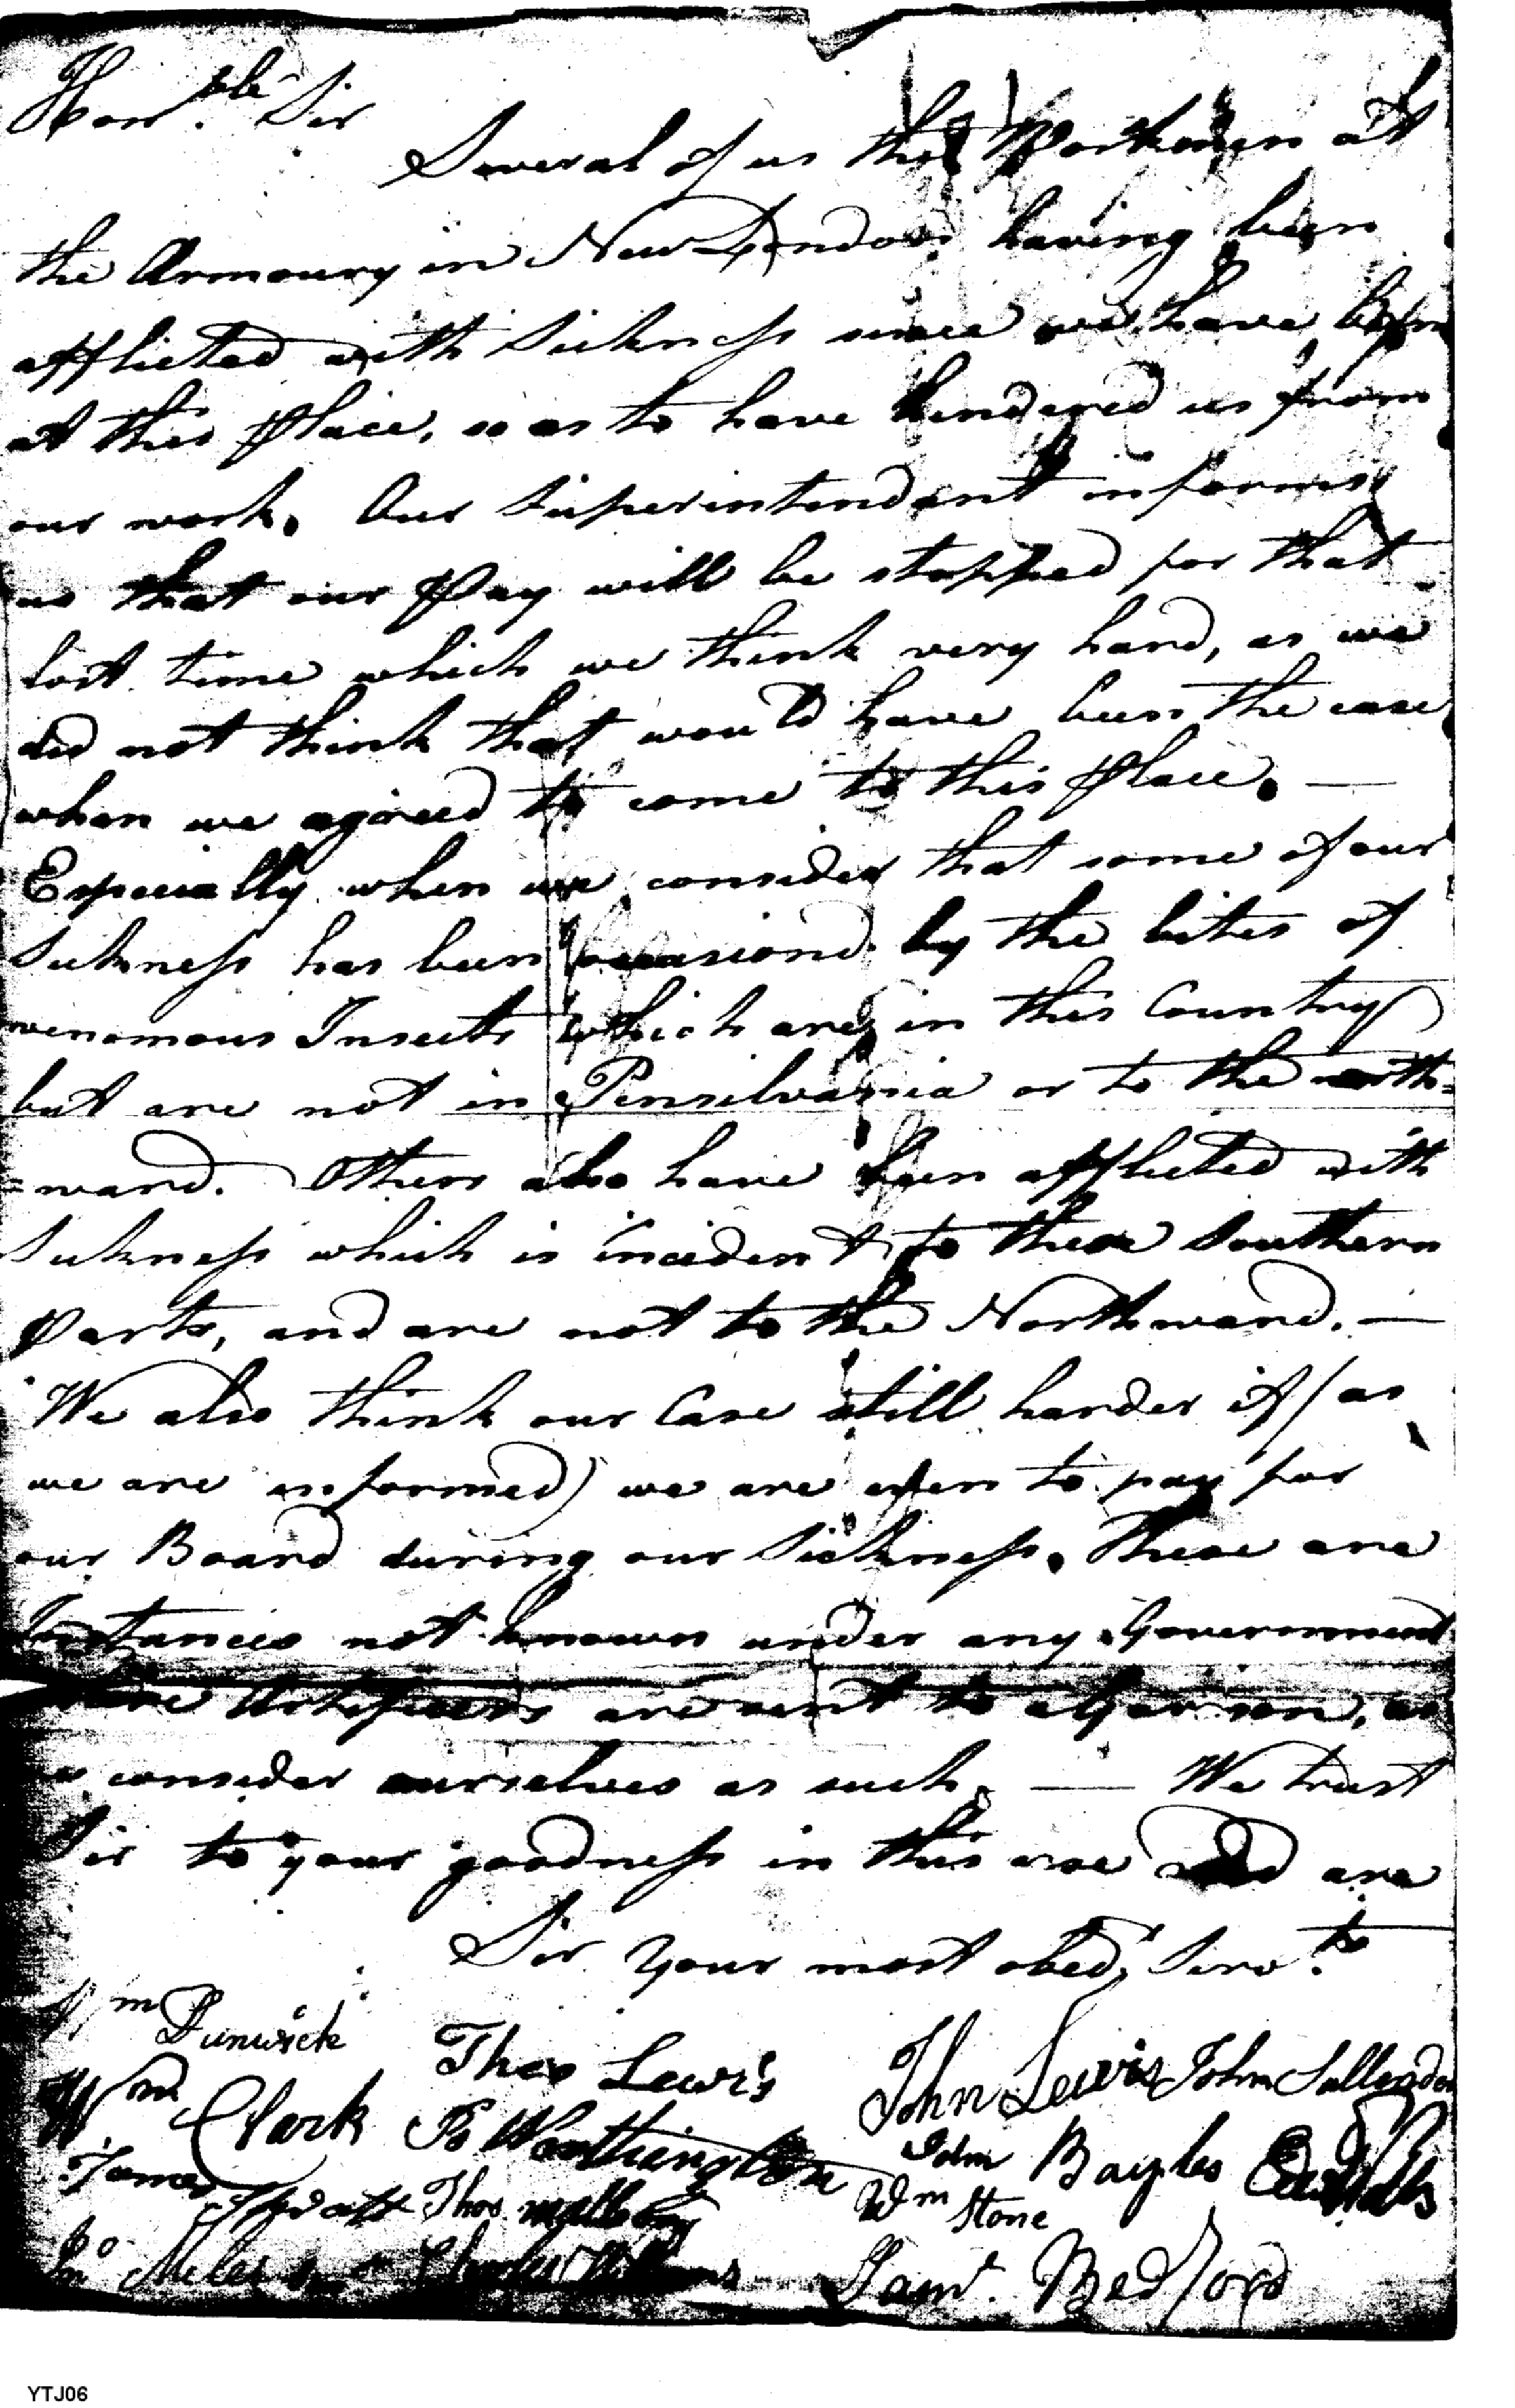 Hon.ble Sir
Several of us the Workmen at
the Armoury in New London having been
afflicted with Sickness since we have been
at this Place, so as to have hendered us from
our work. Our Superintendant informs
us that our Pay will be stopped for that
lost time which we think very hard, as we
did not think that would have been the case
when we agreed to come to this Place. —
Especially when we consider that some of our
Sickness has been occasiond by the bites of
venomous Insects which are in this Country
but are not in Pensilvania or to the north=
=ward. Others also have been afflicted with
Sickness which is incident to these Southern
Parts, and are not to the Northward. —
We also think our Case still harder if (as
we are informed) we are even to pay for
our Board during our Sickness. These are
Instances not known under any Government
where Artificers are sent to a Garrison, as
we consider ourselves as such. — We trust
Sir to your goodness in this case and are
Sir Your most obedt. Servts.
Wm Dunwick Thos Lewis John Lewis John
Wm Clark Worthington John Bayles
James Thos Wm Stone
Jno Miles Charles Williams Saml. Bedford
YTJ06